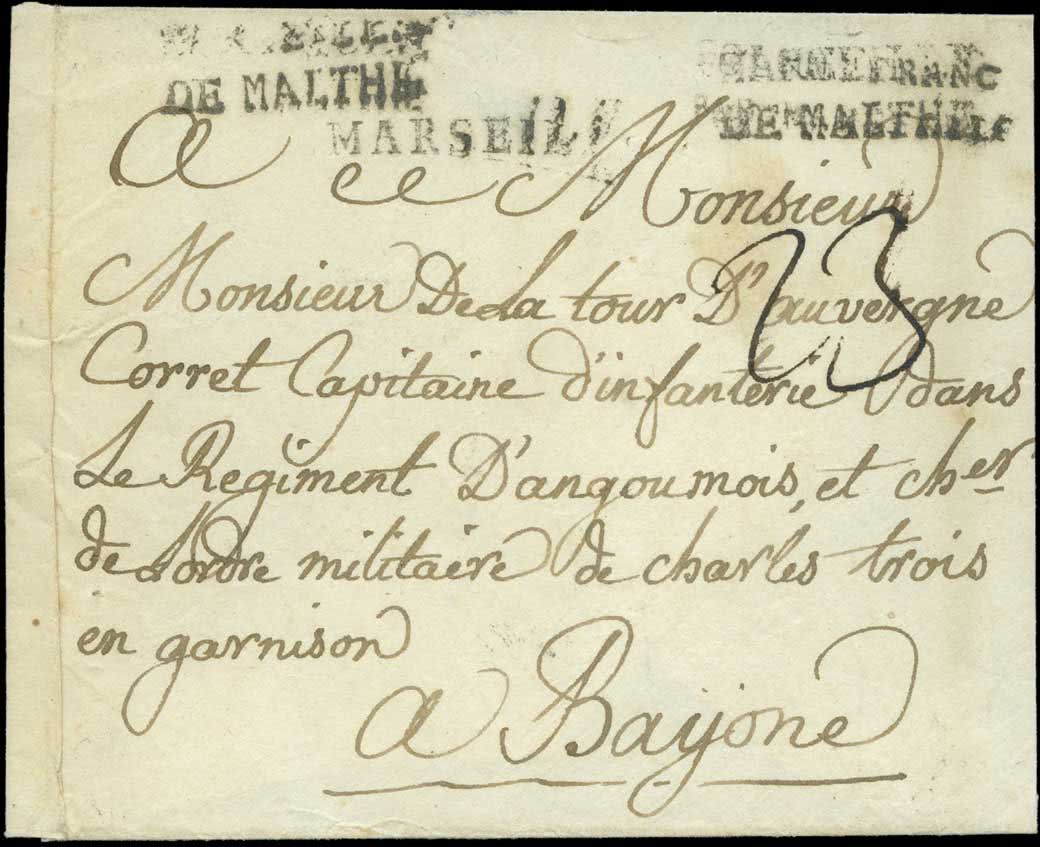 DE MALTHE
MARSEILLE
FRANC
DE MALTHE
A Monsieur
Monsieur De La tour D'auvergne
Corret Capitaine d'infanterie dans
Le Regiment D'angoumois, et cher
de Lordre militaire de charles trois
en garnison
a Bayone
23